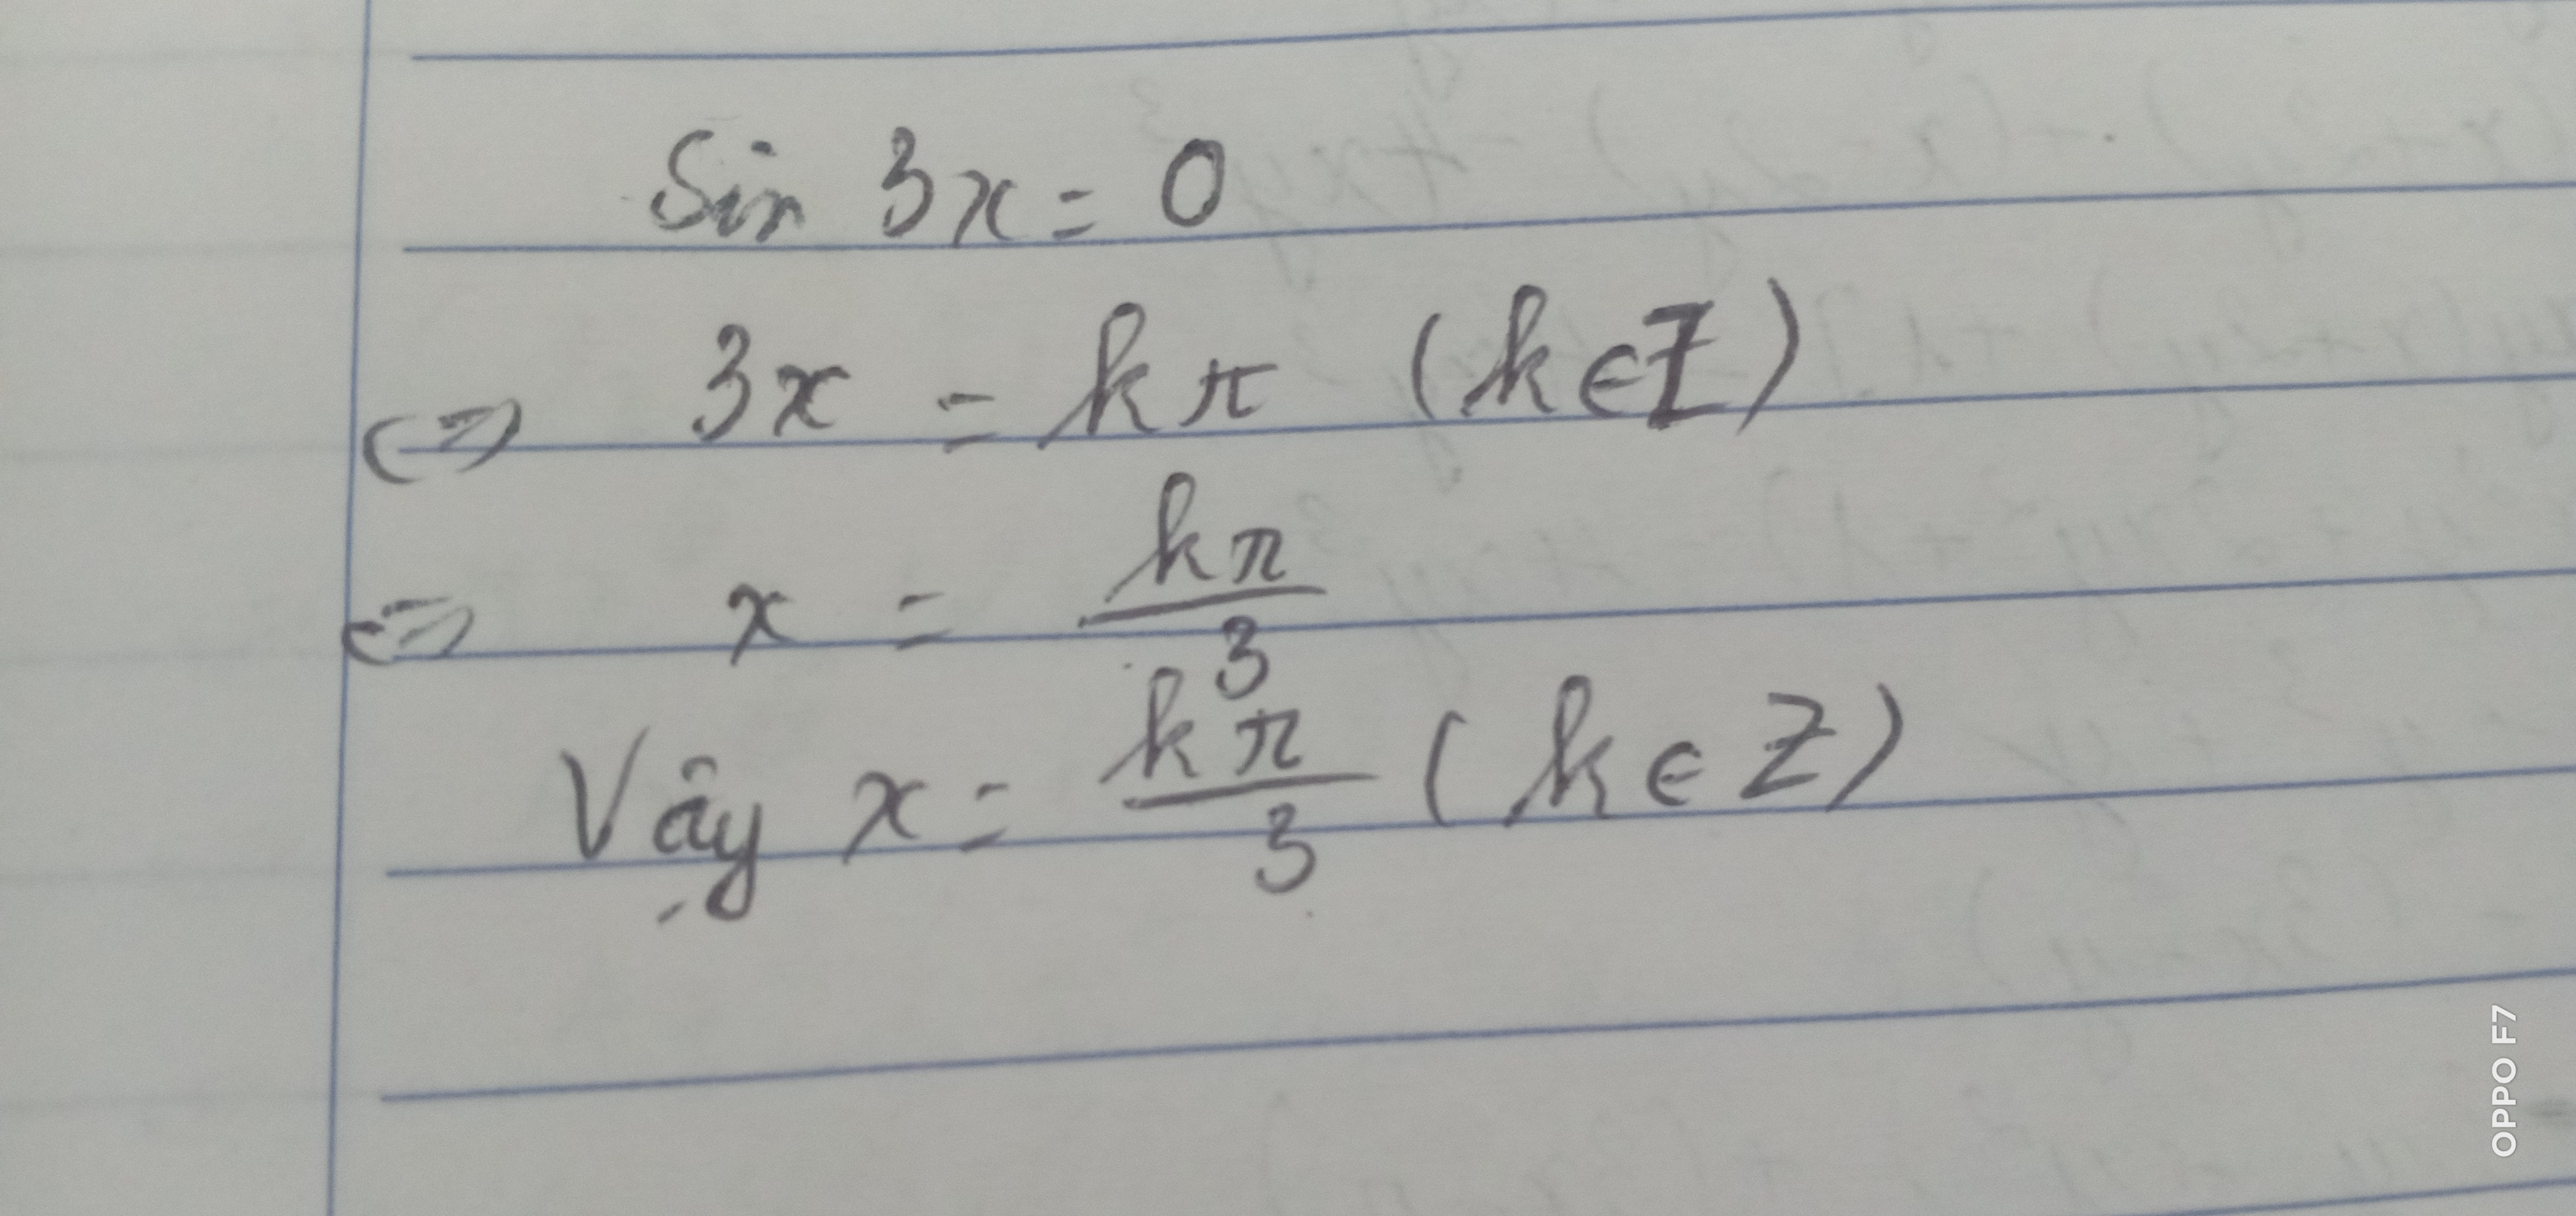 Sin 3x = 0
⇔ 3x = kπ (k ∈ Z)
⇔ x = kπ/3
Vậy x = kπ/3 (k ∈ Z)
OPPO F7